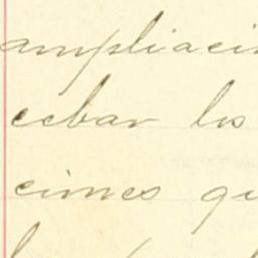 ampliaci
cebar los
ciones qu